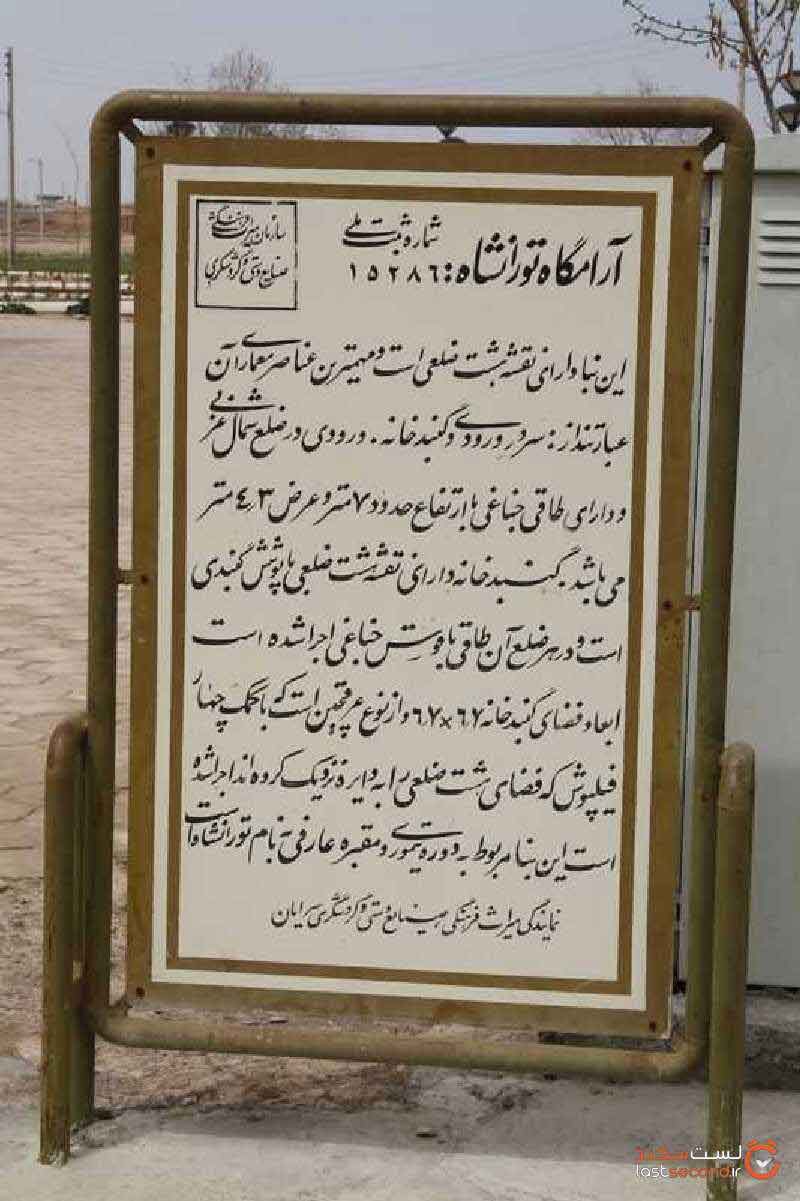 سازمان میراث فرهنگی
صنایع دستی و گردشگری
شماره ثبت ملی
آرامگاه تورانشاه: ۱۵۲۸۶
این بنا دارای نقشه هشت ضلعی است و مهمترین عناصر معماری آن
عبارتند از: سردر ورودی و گنبد خانه. ورودی در ضلع شمال غربی
و دارای طاقی جناغی با ارتفاع حدود ۷ متر و عرض ۴٫۳ متر
می باشد. گنبد خانه دارای نقشه هشت ضلعی با پوشش گنبدی
است و در هر ضلع آن طاقی با پوشش جناغی اجرا شده است
ابعاد فضای گنبد خانه ۶٫۷×۶٫۷ و از نوع عرقچین است که با کمک چهار
فیلپوش که فضای هشت ضلعی را به دایره نزدیک کرده اند اجرا شده
است این بنا مربوط به دوره تیموری و مقبره عارفی به نام تورانشاه است
نمایندگی میراث فرهنگی صنایع دستی و گردشگری سرایان
لست سکند
lastsecond.ir